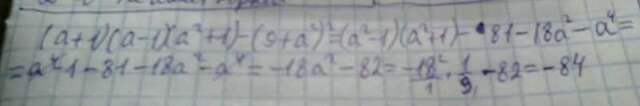 (a+1)(a-1)(a²+1)-(9+a²)²=(a²-1)(a²+1)-81-18a²-a⁴=
=a⁴-1-81-18a²-a⁴=-18a²-82=-18²/1·1/9-82=-84